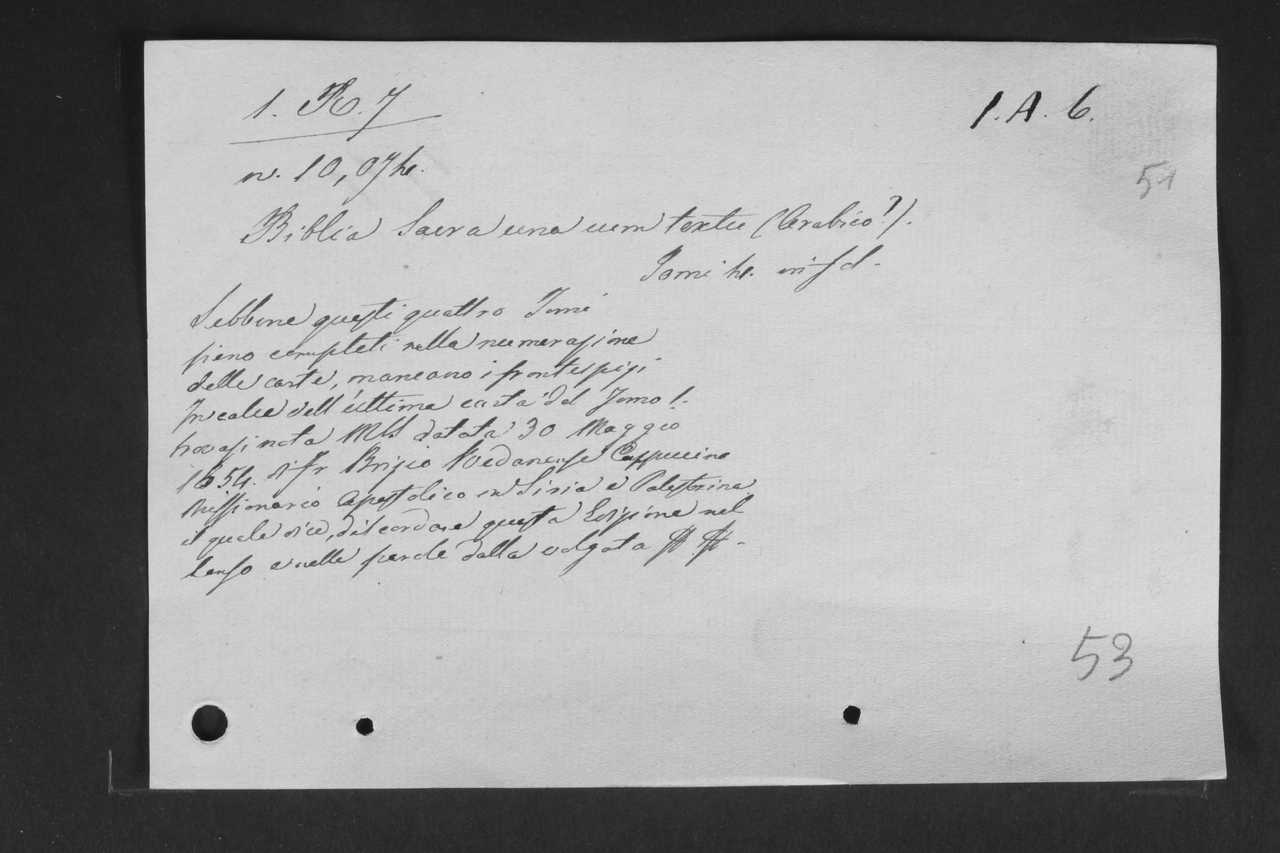 1. R. 7
1. A. 6.
n. 10,074.
51
Biblia Sacra una cum textu (Arabico?).
Tomi 4. in fol.
Sebbene questi quattro Tomi
sieno completi nella numerazione
delle carte, mancano i frontespizi
In calce dell'ultima carta del Tomo 1.
trovasi nota MS datata 30 Maggio
1654. di fr Brizio Cappuccino
Missionario Apostolico in Siria e Palestina
il quale dice, discordare questa Edizione nel
senso e nelle parole dalla volgata
53